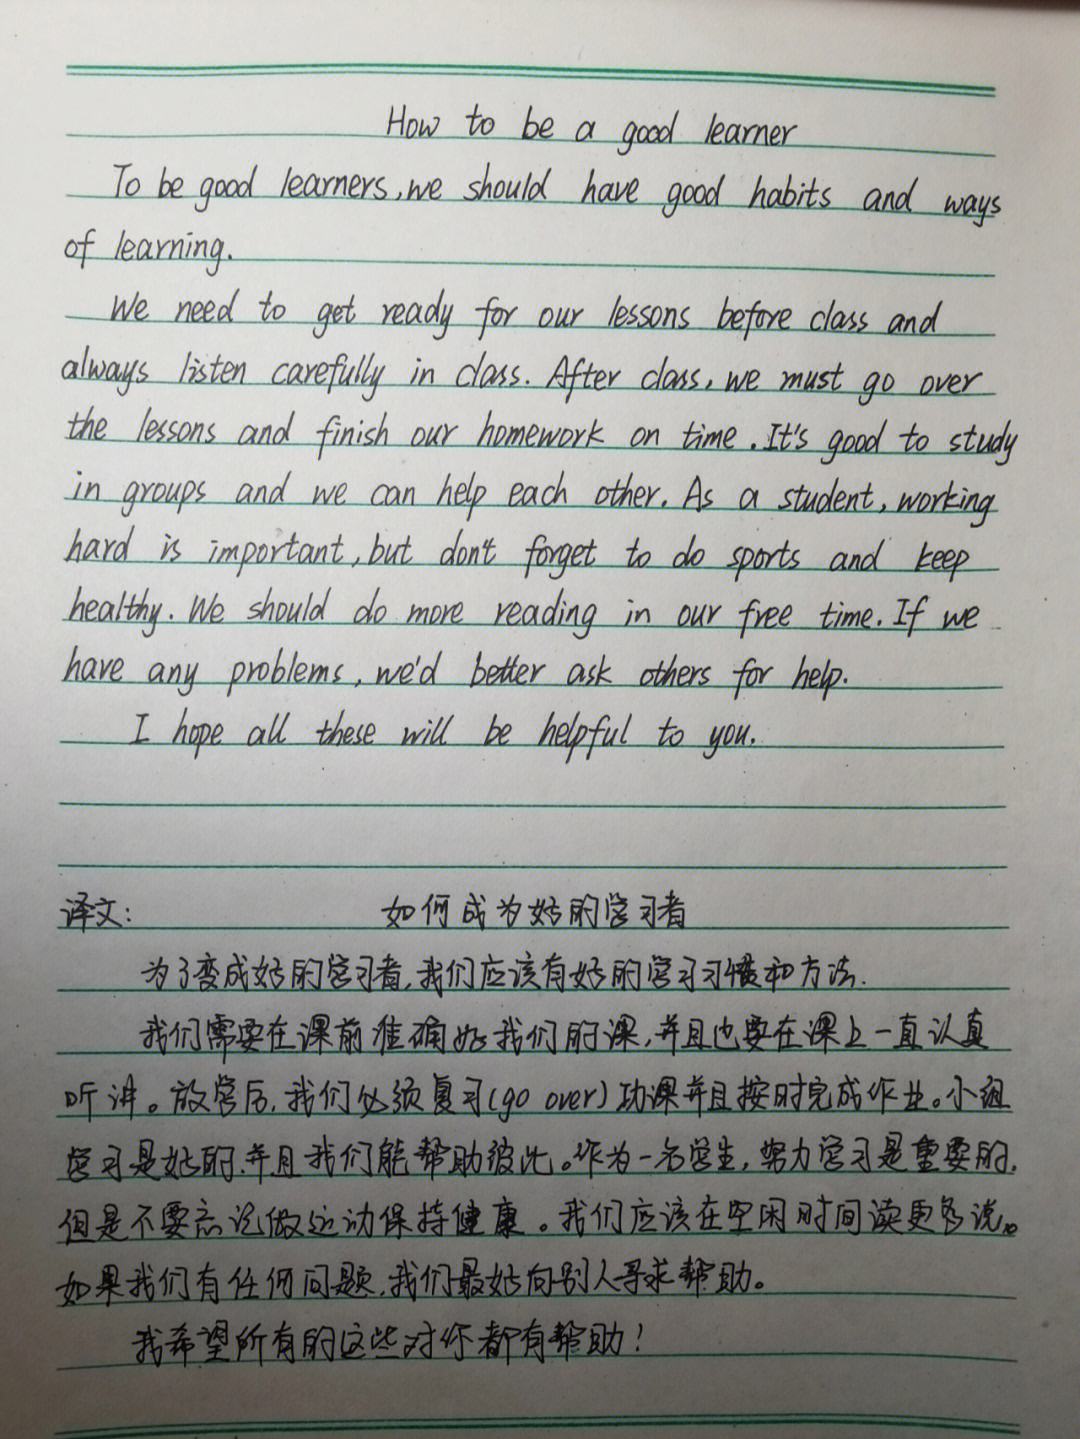 How to be a good learner
To be good learners, we should have good habits and ways
of learning.
We need to get ready for our lessons before class and
always listen carefully in class. After class, we must go over
the lessons and finish our homework on time. It's good to study
in groups and we can help each other. As a student, working
hard is important, but don't forget to do sports and keep
healthy. We should do more reading in our free time. If we
have any problems, we'd better ask others for help.
I hope all these will be helpful to you.
译文: 如何成为好的学习者
为了变成好的学习者,我们应该有好的学习习惯和方法.
我们需要在课前准确好我们的课,并且也要在课上一直认真
听讲。放学后,我们必须复习(go over)功课并且按时完成作业。小组
学习是好的,并且我们能帮助彼此。作为一名学生,努力学习是重要的,
但是不要忘记做运动保持健康。我们应该在空闲时间读更多说。
如果我们有任何问题,我们最好向别人寻求帮助。
我希望所有的这些对你都有帮助!